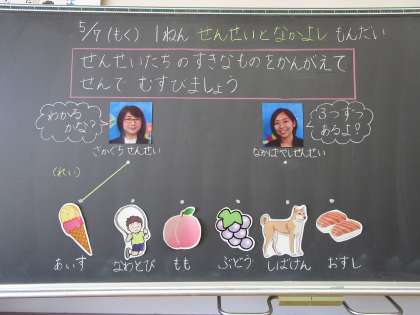 5/7(もく) 1ねん せんせいとなかよし もんだい
せんせいたちのすきなものをかんがえて
せんで むすびましょう
わかる
かな?
3つずつ
あるよ?
さかぐちせんせい
なかばやしせんせい
(れい)
あいす
なわとび
もも
ぶどう
しばけん
おすし